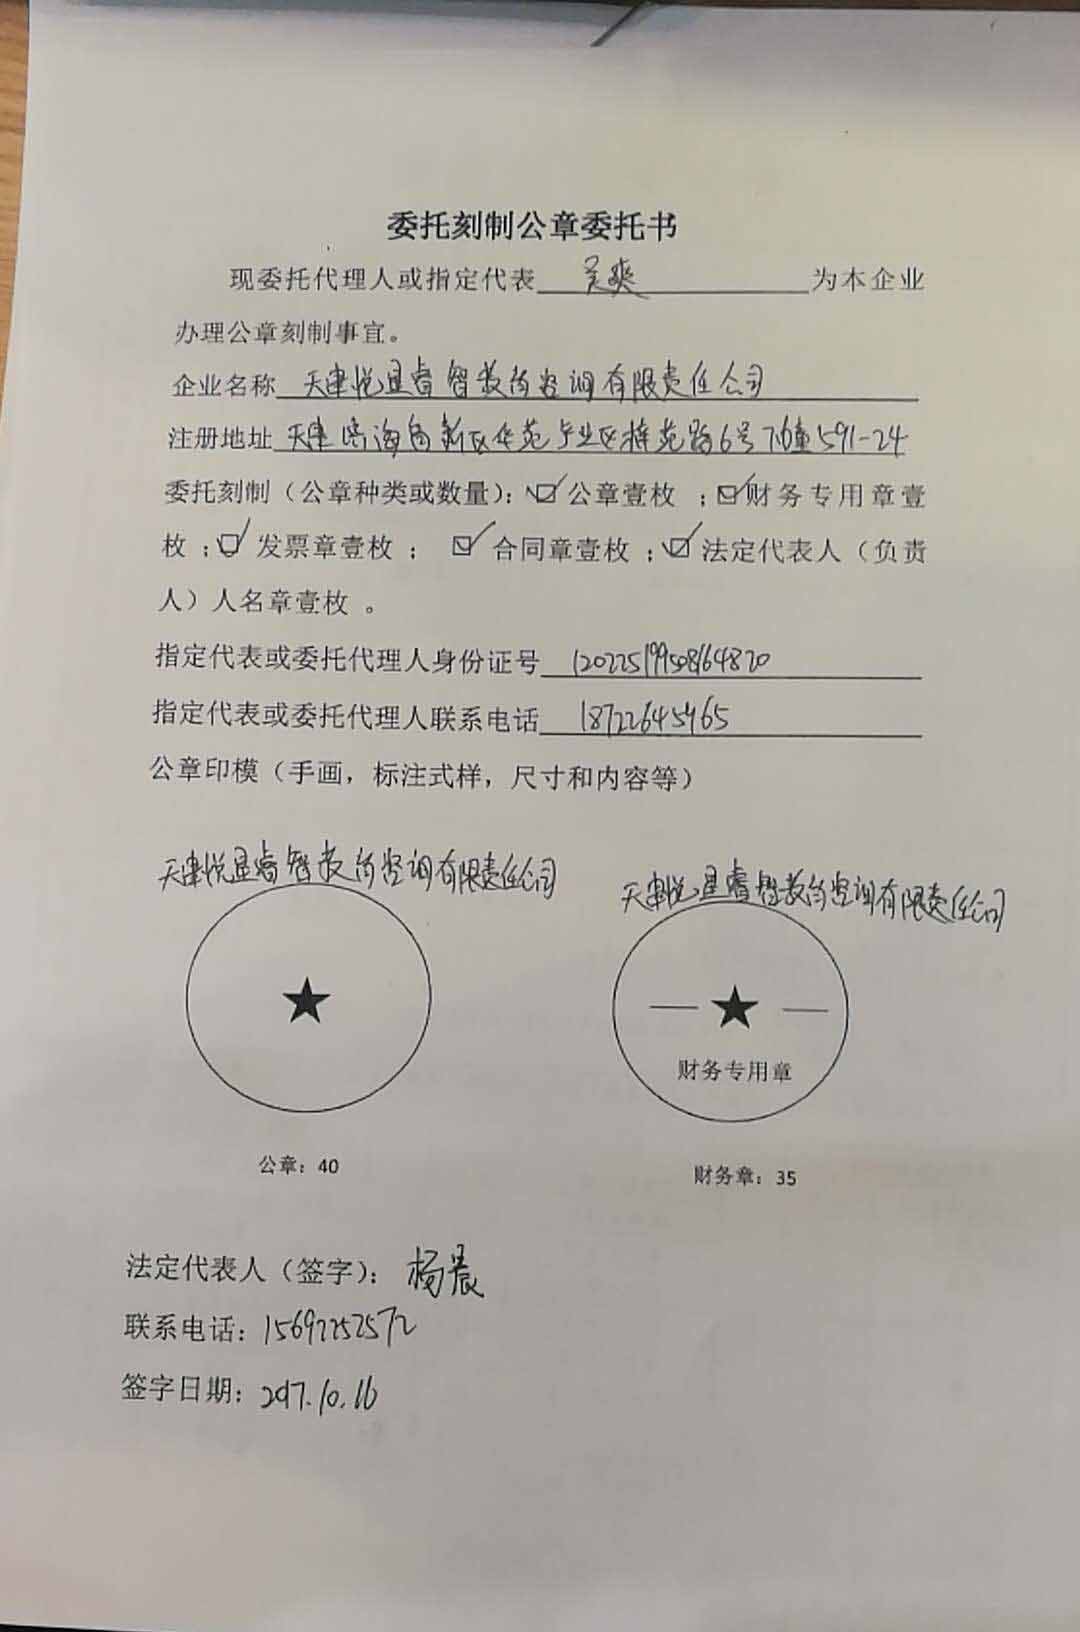 委托刻制公章委托书
现委托代理人或指定代表 吴爽 为本企业
办理公章刻制事宜。
企业名称 天津悦昱睿智教育咨询有限责任公司
注册地址 天津滨海高新区华苑产业区梓苑路6号7幢591-24
委托刻制（公章种类或数量）：☑公章壹枚 ；☑财务专用章壹
枚 ；☑ 发票章壹枚 ； ☑ 合同章壹枚 ；☑ 法定代表人（负责
人）人名章壹枚 。
指定代表或委托代理人身份证号
指定代表或委托代理人联系电话 18722645465
公章印模（手画，标注式样，尺寸和内容等）
天津悦昱睿智教育咨询有限责任公司
天津悦昱睿智教育咨询有限责任公司
财务专用章
公章：40
财务章：35
法定代表人（签字）： 杨晨
联系电话：15692252572
签字日期：2017.10.16